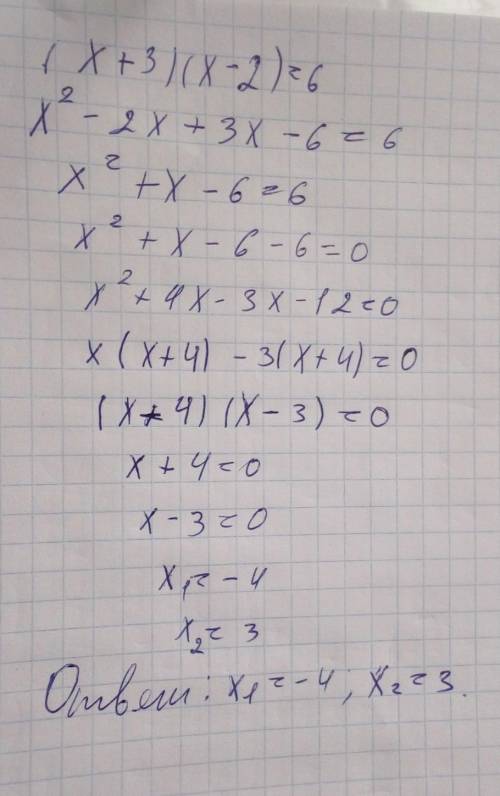 (x+3)(x-2)=6
x² - 2x + 3x - 6 = 6
x² + x - 6 = 6
x² + x - 6 - 6 = 0
x² + 4x - 3x - 12 = 0
x(x+4) - 3(x+4) = 0
(x+4)(x-3) = 0
x + 4 = 0
x - 3 = 0
x₁ = -4
x₂ = 3
Ответ: x₁ = -4; x₂ = 3.